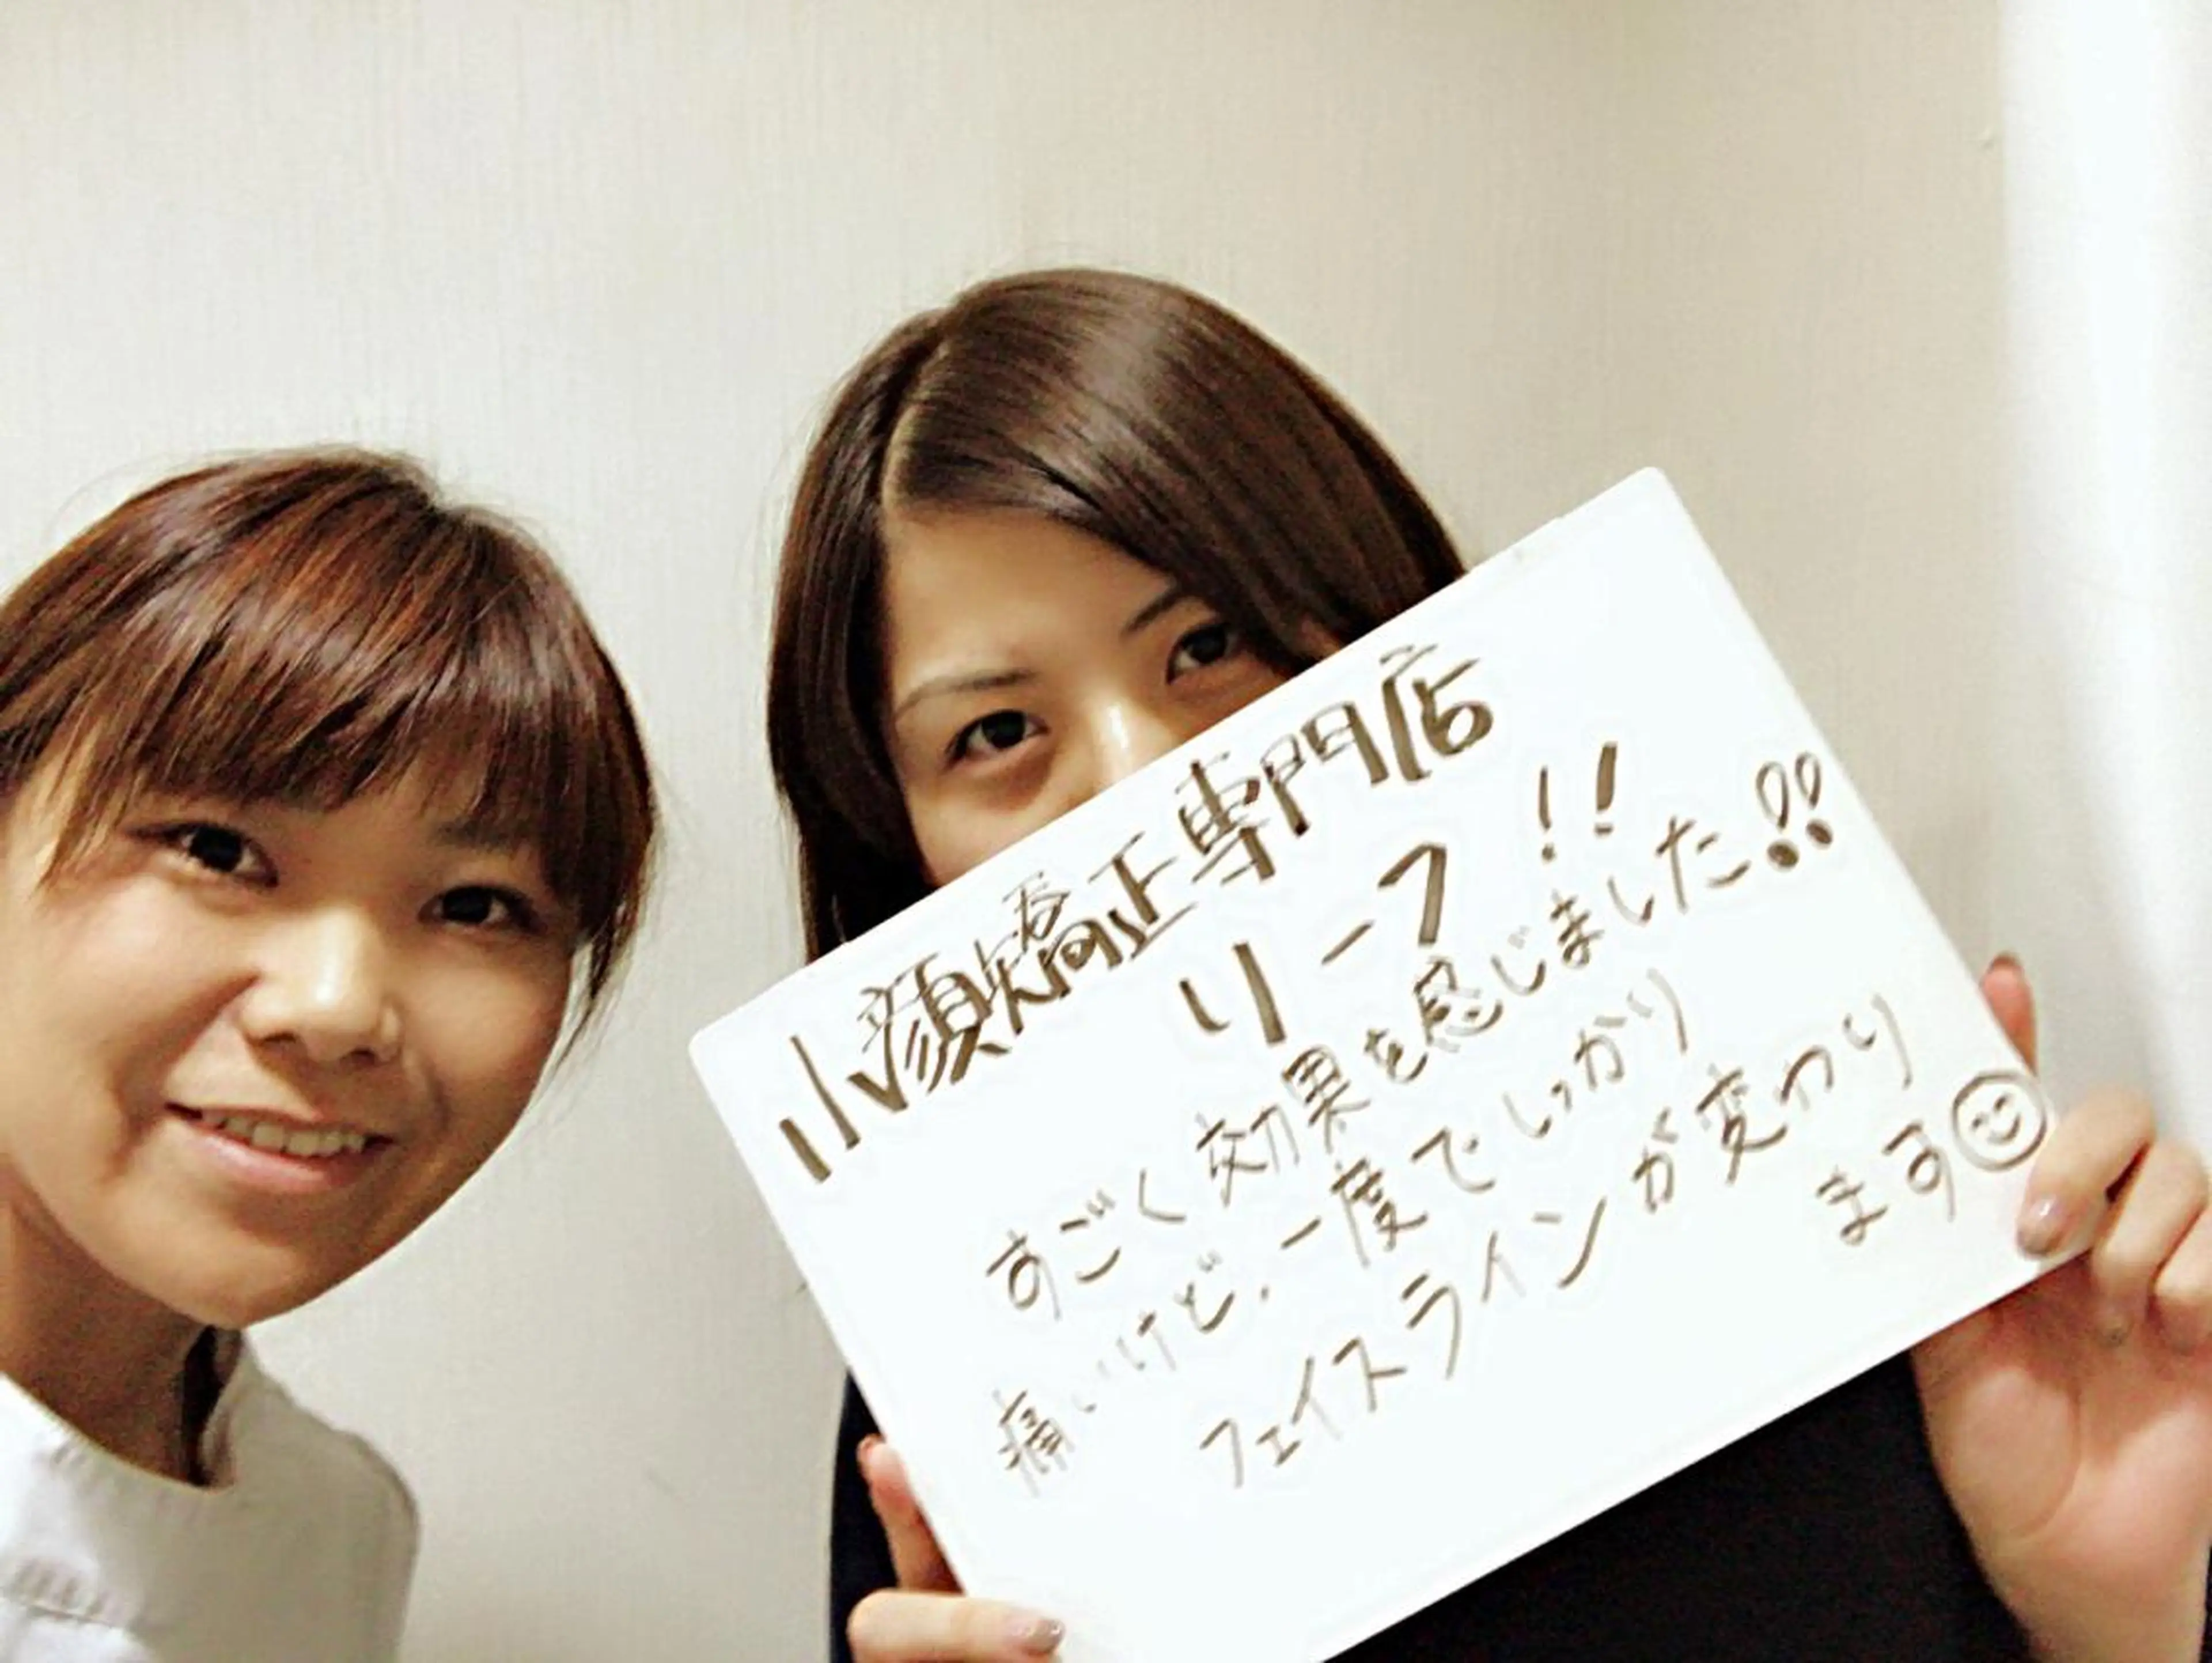 小顔矯正専門店
リーフ!!
すごく効果を感じました!!
痛いけど、一度でしっかり
フェイスラインが変わり
ます